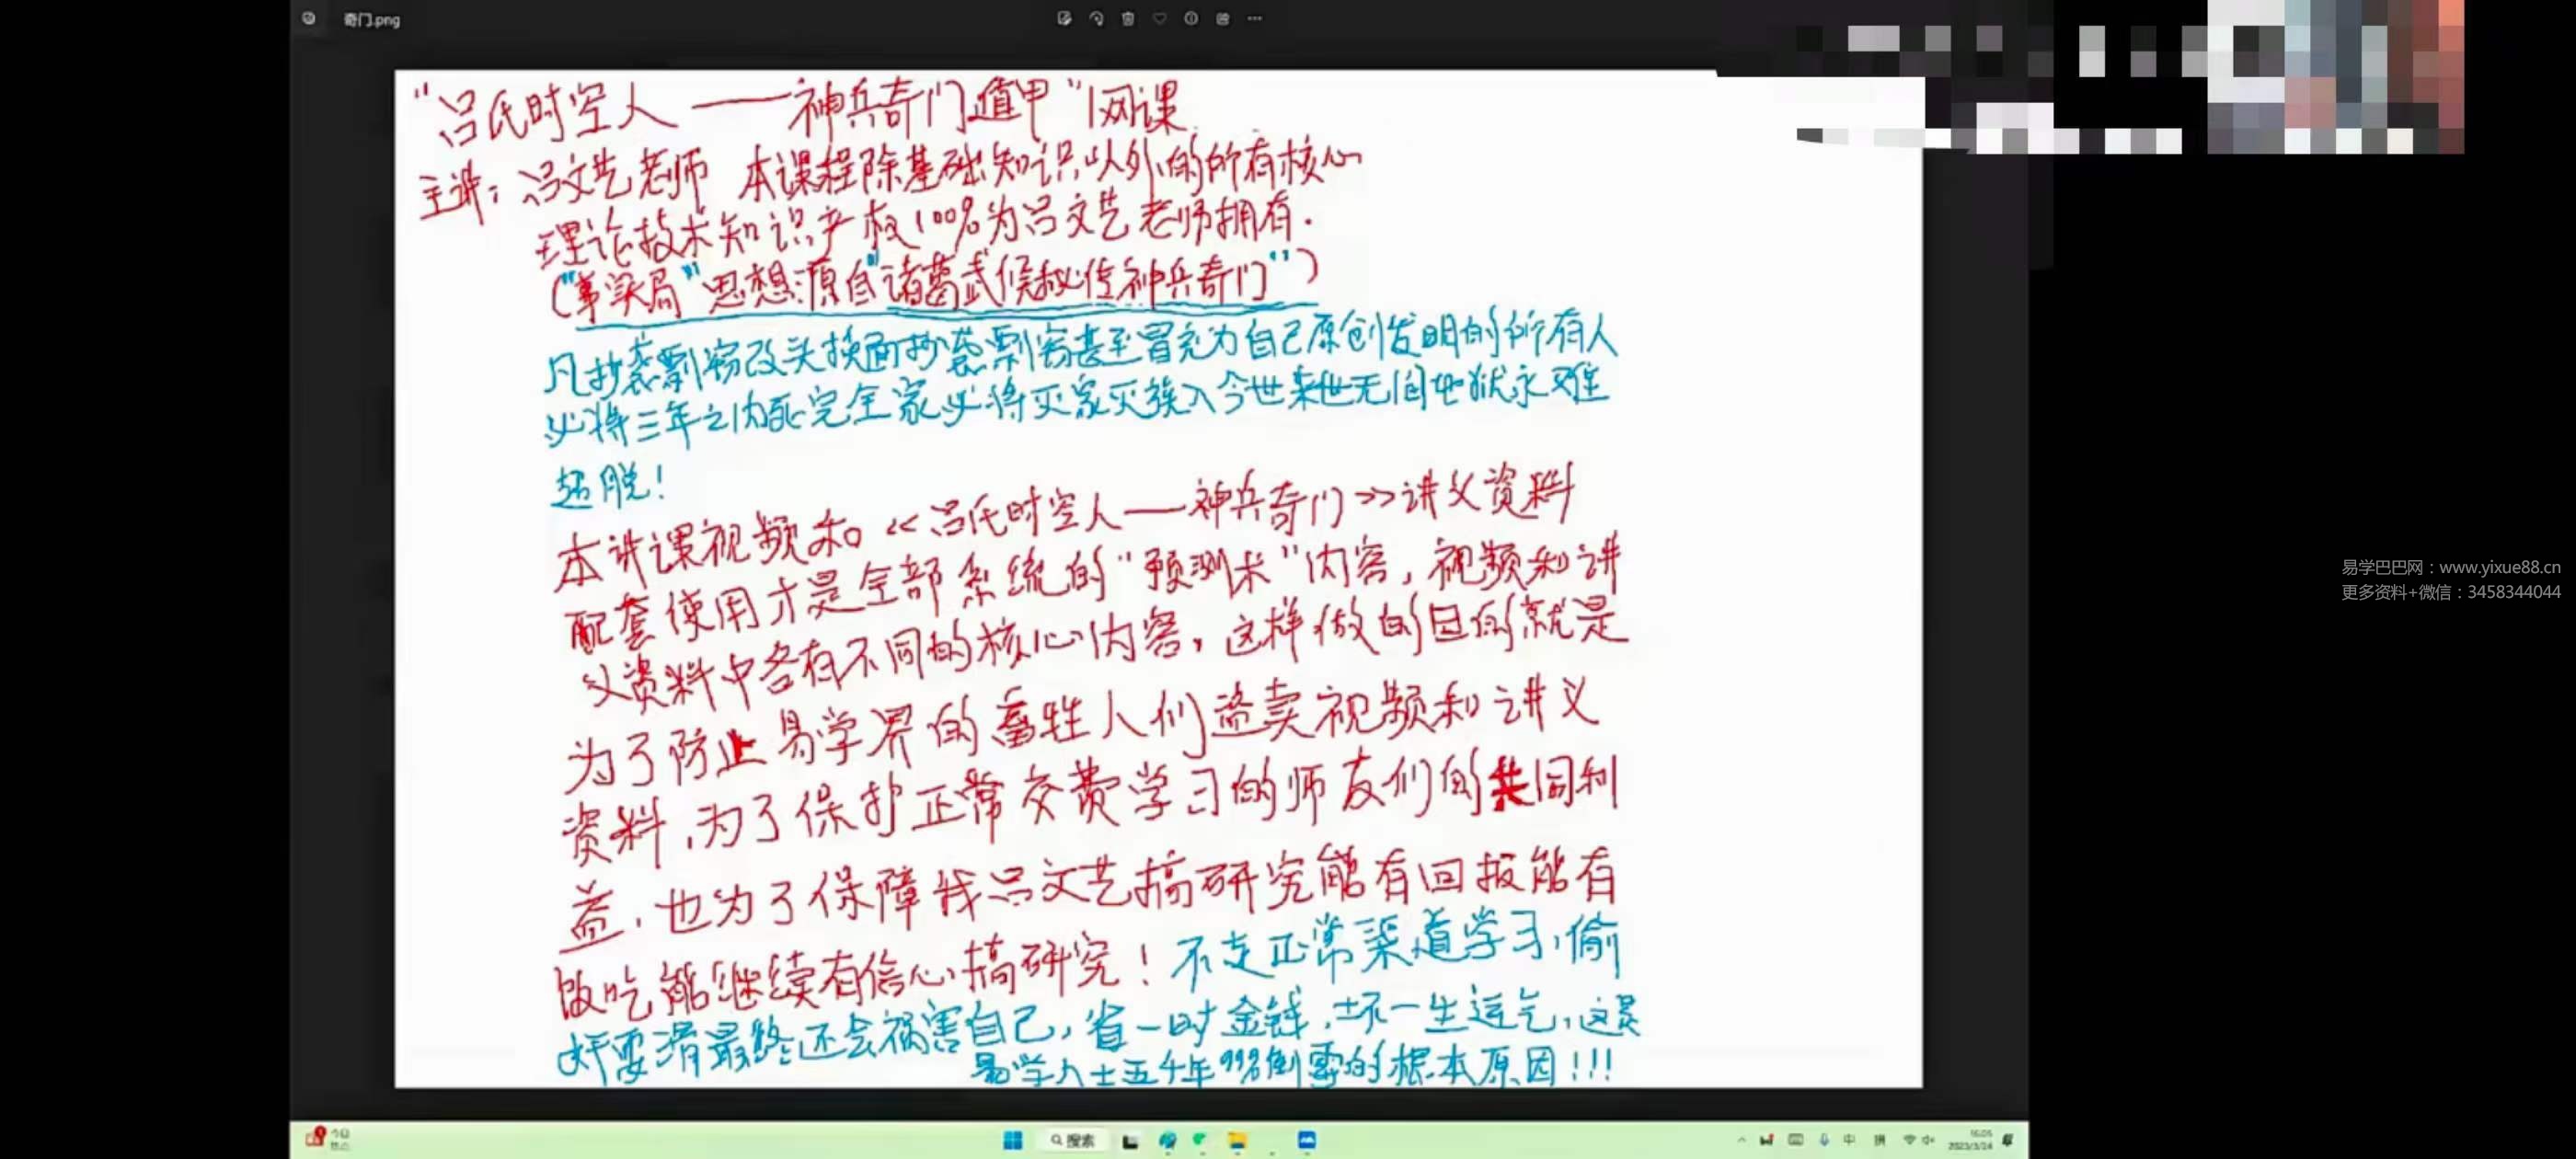 奇门.png
"吕氏时空人——神兵奇门遁甲"网课
主讲:吕文艺老师 本课程除基础知识以外的所有核心
理论技术知识产权100%为吕文艺老师拥有.
("事实局"思想源自"诸葛武候秘传神兵奇门")
凡抄袭剽窃改头换面抄袭剽窃甚至冒充为自己原创发明的所有人
必将三年之内死完全家必将灭家灭族入今世来世无间地狱永难
超脱!
本讲课视频和《吕氏时空人——神兵奇门》讲义资料
配套使用才是全部系统的"预测术"内容,视频和讲
义资料中各有不同的核心内容,这样做的目的就是
为了防止易学界的畜牲人们盗卖视频和讲义
资料,为了保护正常交费学习的师友们的共同利
益,也为了保障我吕文艺搞研究能有回报能有
饭吃能继续有信心搞研究!不走正常渠道学习,偷
奸耍滑最终还会祸害自己,省一时金钱,坏一生运气,这是
易学人士五千年99%倒霉的根本原因!!!
易学巴巴网:www.yixue88.cn
更多资料+微信:3458344044
今日
搜索
中
拼
16:05
2023/3/24